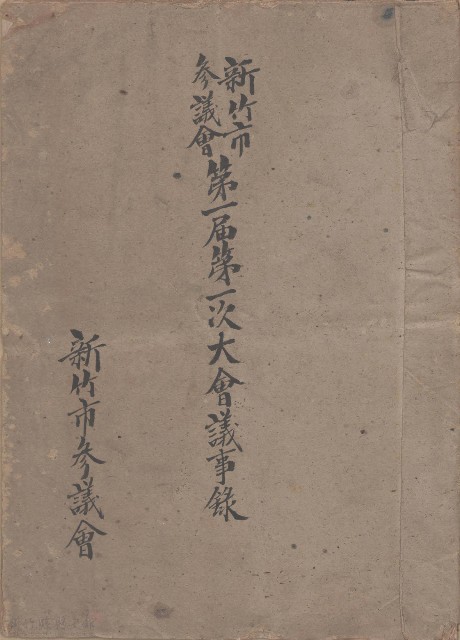 新竹市
參議會
第一屆第一次大會議事錄
新竹市參議會